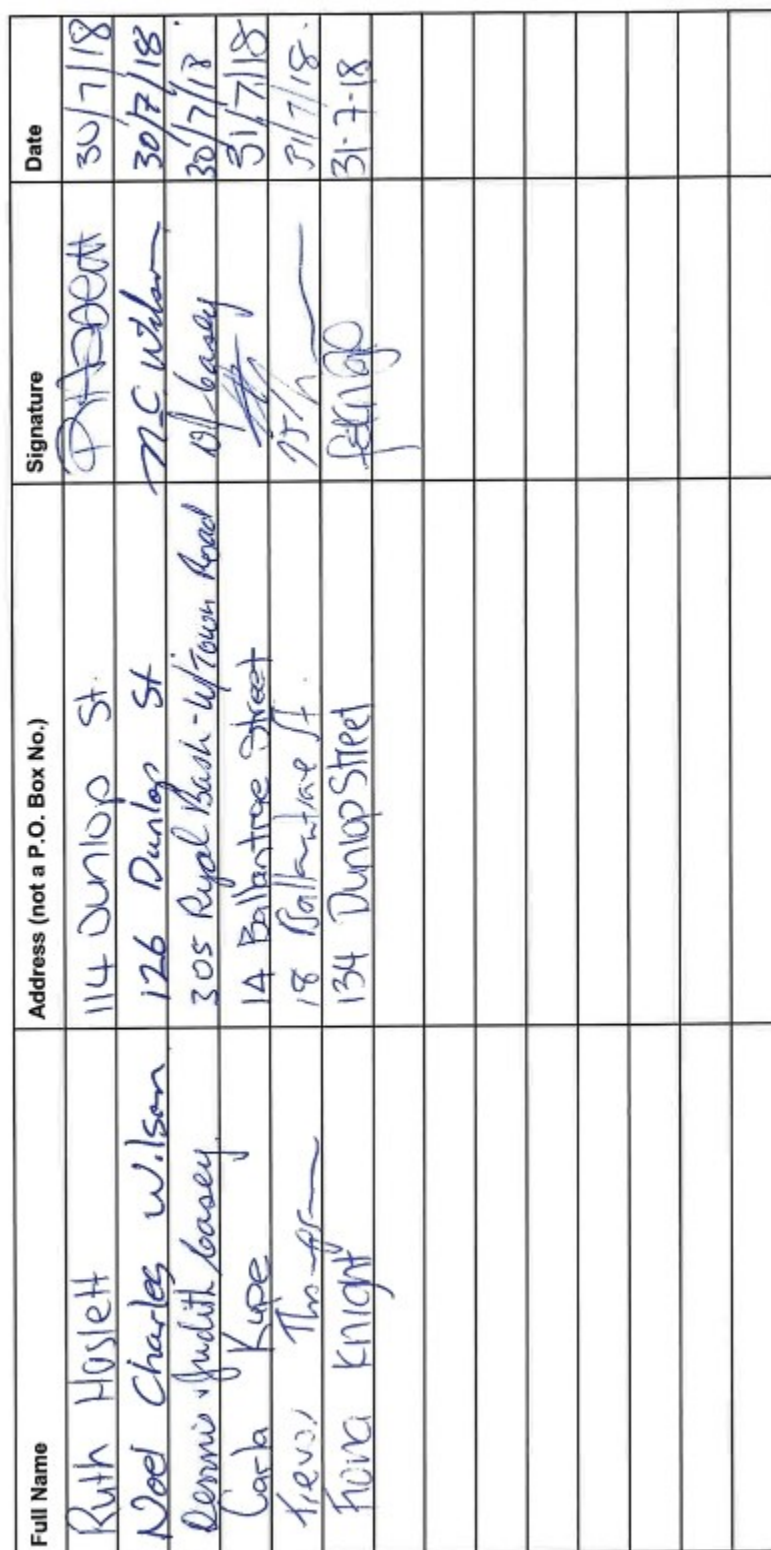 Full Name Address (not a P.O. Box No.) Signature Date
Ruth Haslett 114 Dunlop St. 30/7/18
Noel Charles Wilson 126 Dunlop St N C Wilson 30/7/18
Dennis & Judith Casey 305 Ryal Bush-W/Town Road Casey 30/7/18.
Carla Kupe 14 Ballantrae Street 31/7/18
Trevor 18 St. 31/7/18.
Fiona Knight 134 Dunlop Street 31-7-18